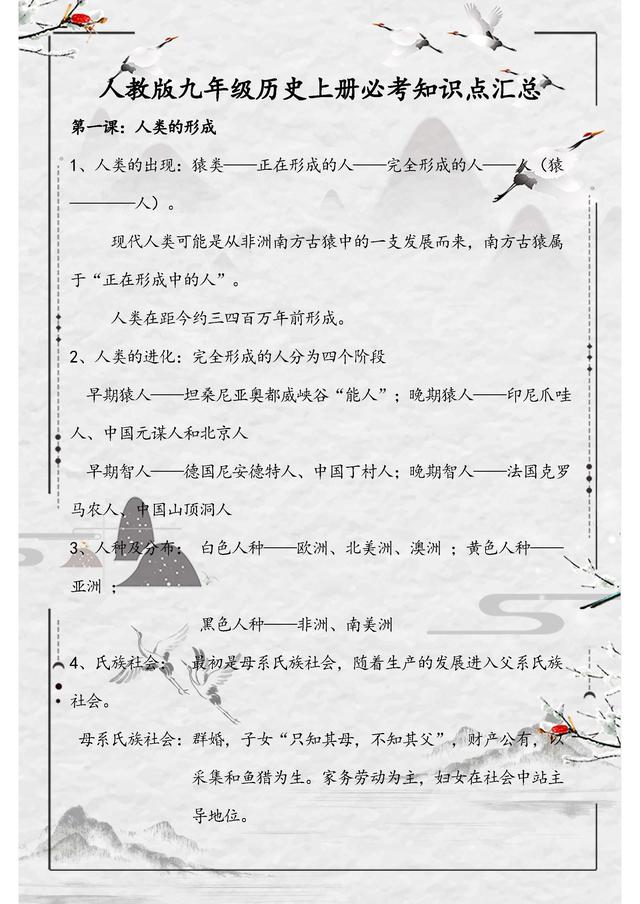 人教版九年级历史上册必考知识点汇总
第一课：人类的形成
1、人类的出现：猿类——正在形成的人——完全形成的人——人（猿
————人）。
现代人类可能是从非洲南方古猿中的一支发展而来，南方古猿属
于“正在形成中的人”。
人类在距今约三四百万年前形成。
2、人类的进化：完全形成的人分为四个阶段
早期猿人——坦桑尼亚奥都威峡谷“能人”；晚期猿人——印尼爪哇
人、中国元谋人和北京人
早期智人——德国尼安德特人、中国丁村人；晚期智人——法国克罗
马农人、中国山顶洞人
3、人种及分布： 白色人种——欧洲、北美洲、澳洲 ；黄色人种——
亚洲 ；
黑色人种——非洲、南美洲
4、氏族社会： 最初是母系氏族社会，随着生产的发展进入父系氏族
社会。
母系氏族社会：群婚，子女“只知其母，不知其父”，财产公有，以
采集和鱼猎为生。家务劳动为主，妇女在社会中站主
导地位。